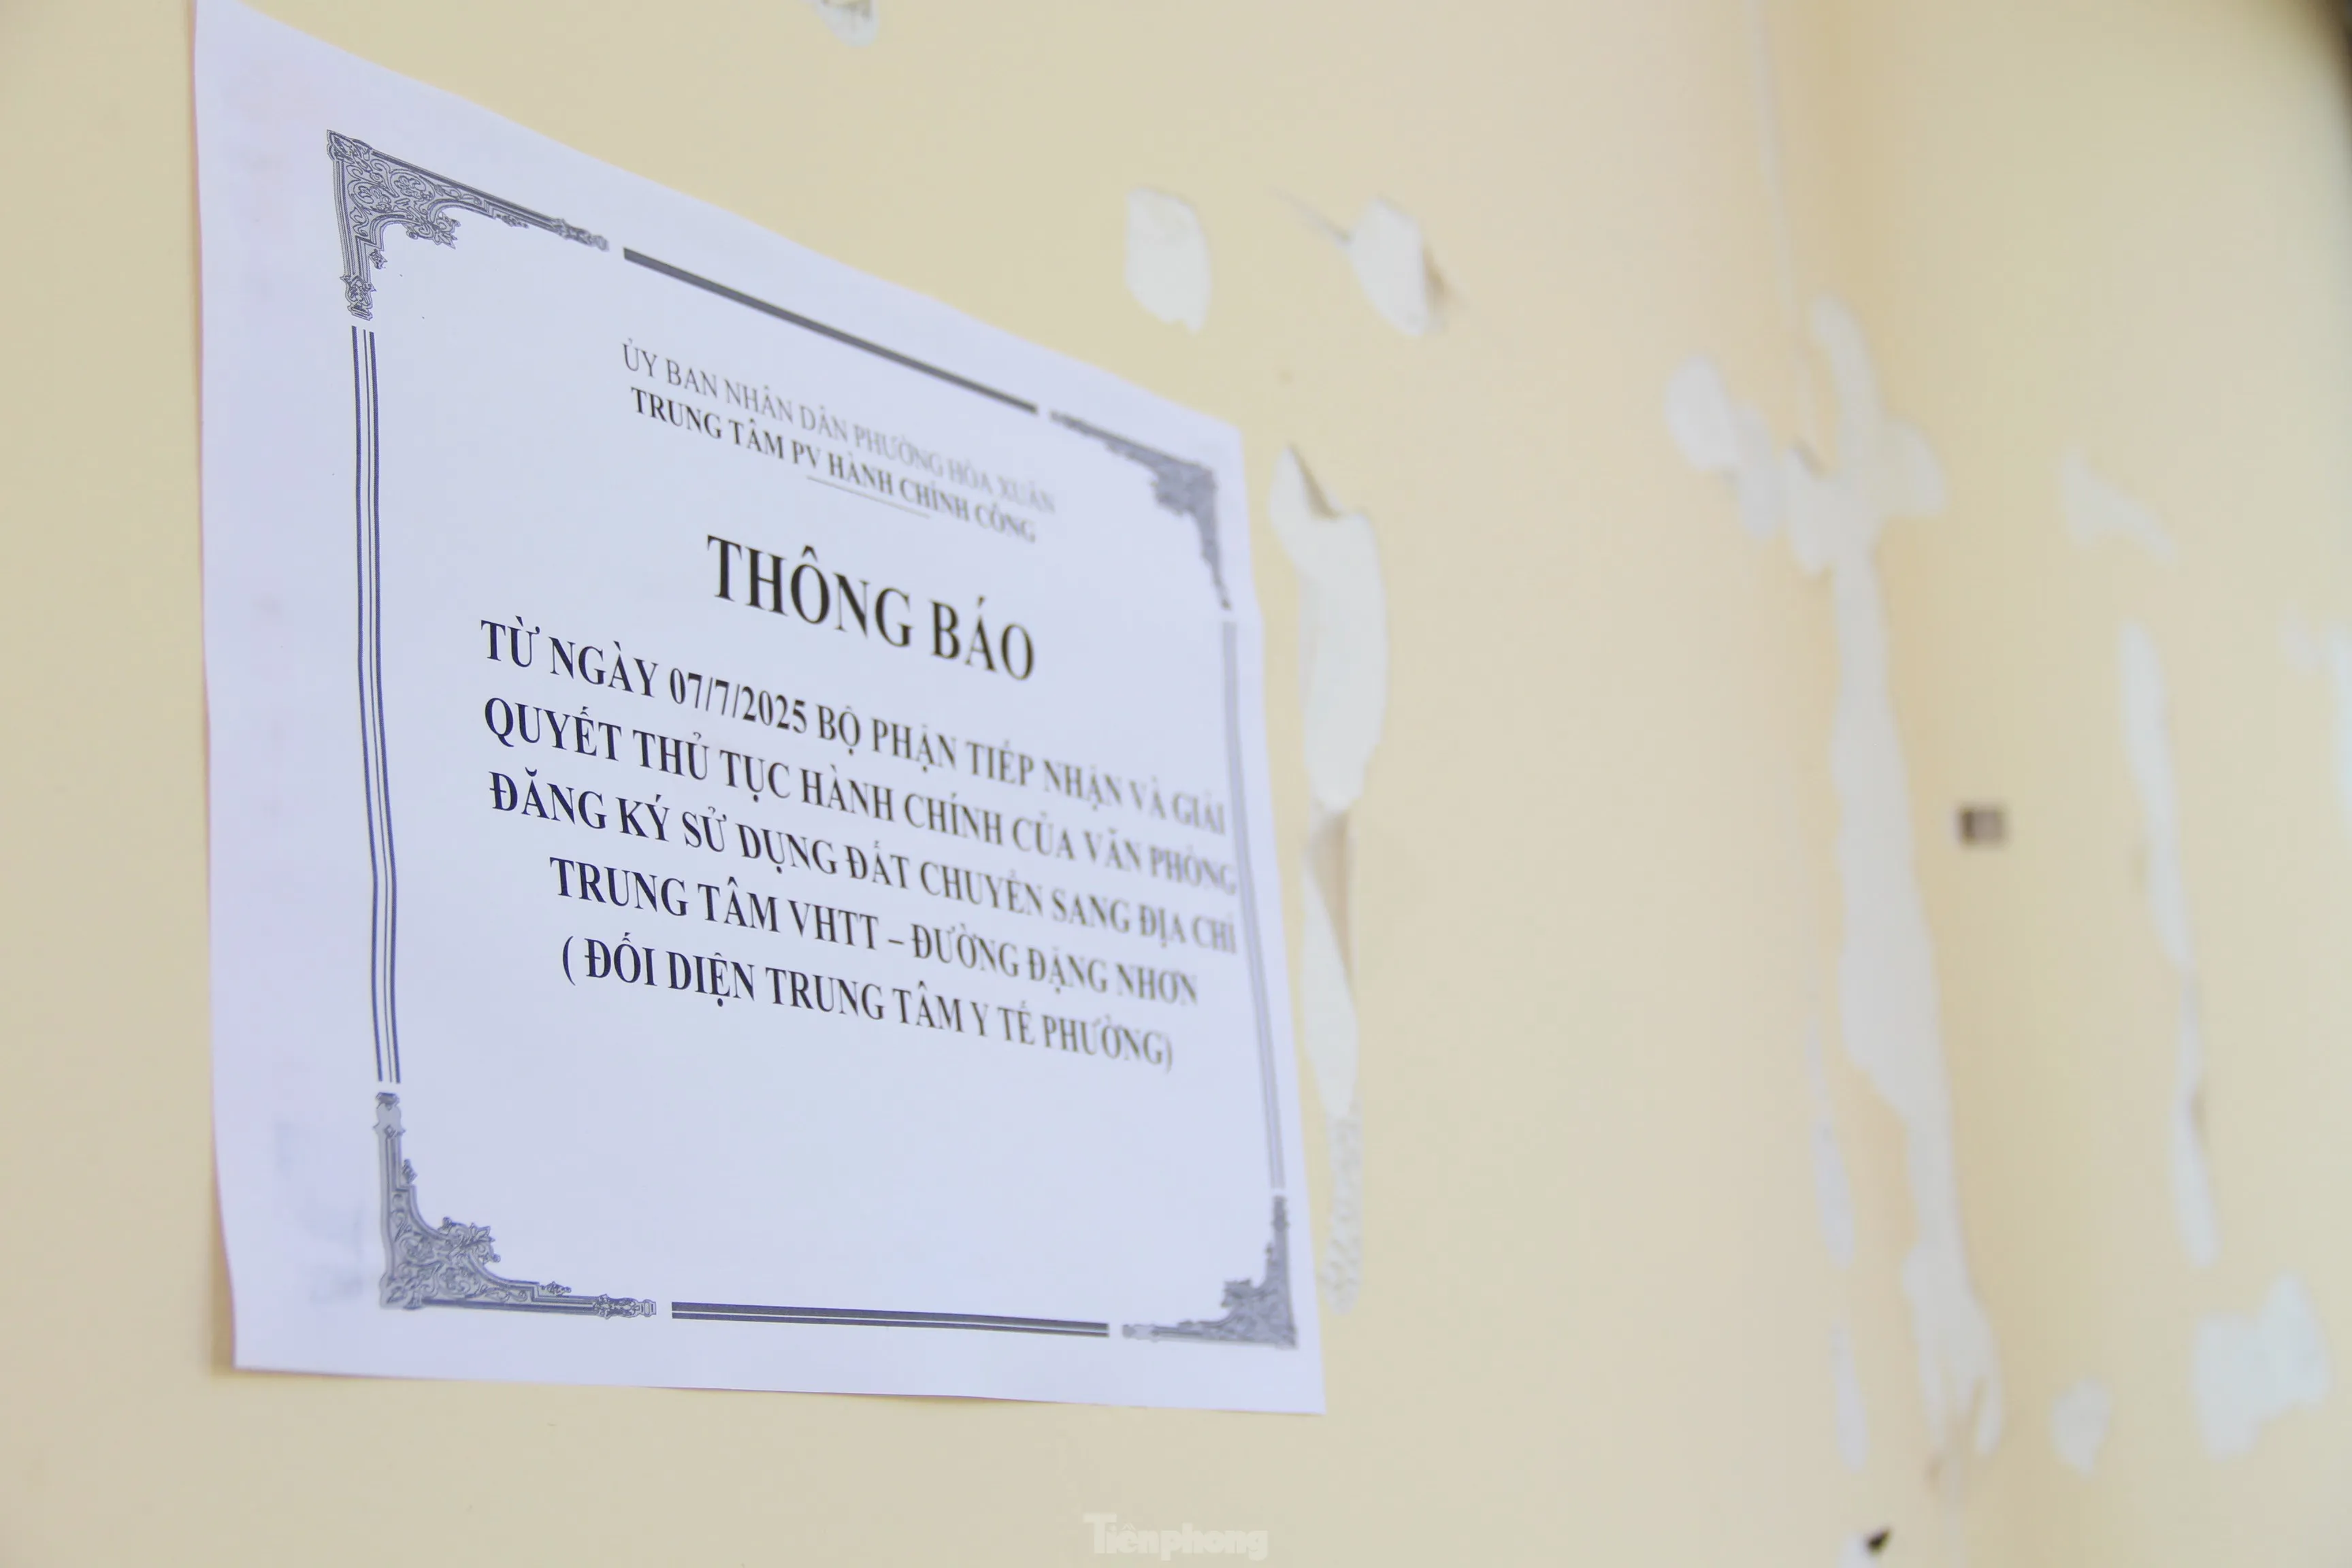 ỦY BAN NHÂN DÂN PHƯỜNG HÒA XUÂN
TRUNG TÂM PV HÀNH CHÍNH CÔNG
THÔNG BÁO
TỪ NGÀY 07/7/2025 BỘ PHẬN TIẾP NHẬN VÀ GIẢI
QUYẾT THỦ TỤC HÀNH CHÍNH CỦA VĂN PHÒNG
ĐĂNG KÝ SỬ DỤNG ĐẤT CHUYỂN SANG ĐỊA CHỈ
TRUNG TÂM VHTT – ĐƯỜNG ĐẶNG NHƠN
( ĐỐI DIỆN TRUNG TÂM Y TẾ PHƯỜNG)
Tiênphong